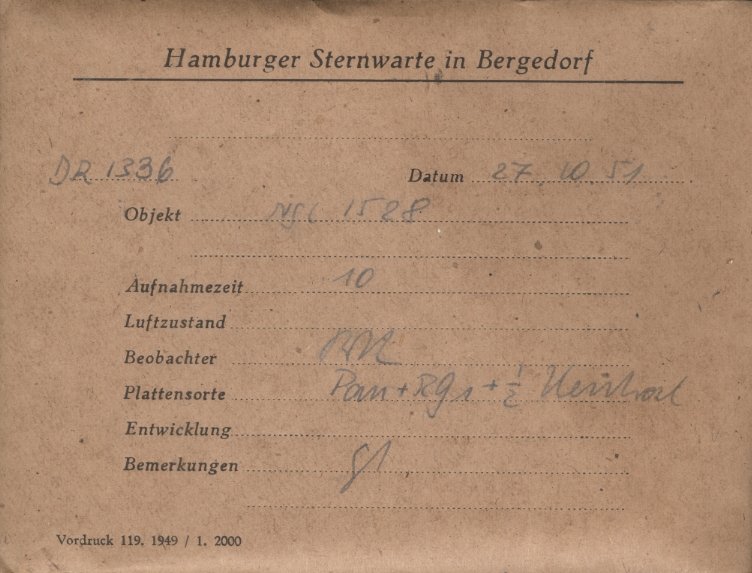 Hamburger Sternwarte in Bergedorf
DR 1336 Datum 27. 10. 51
Objekt NGC 1528
Aufnahmezeit 10
Luftzustand
Beobachter
Plattensorte Pan + RG1 + ½
Entwicklung
Bemerkungen
Vordruck 119. 1949 / 1. 2000